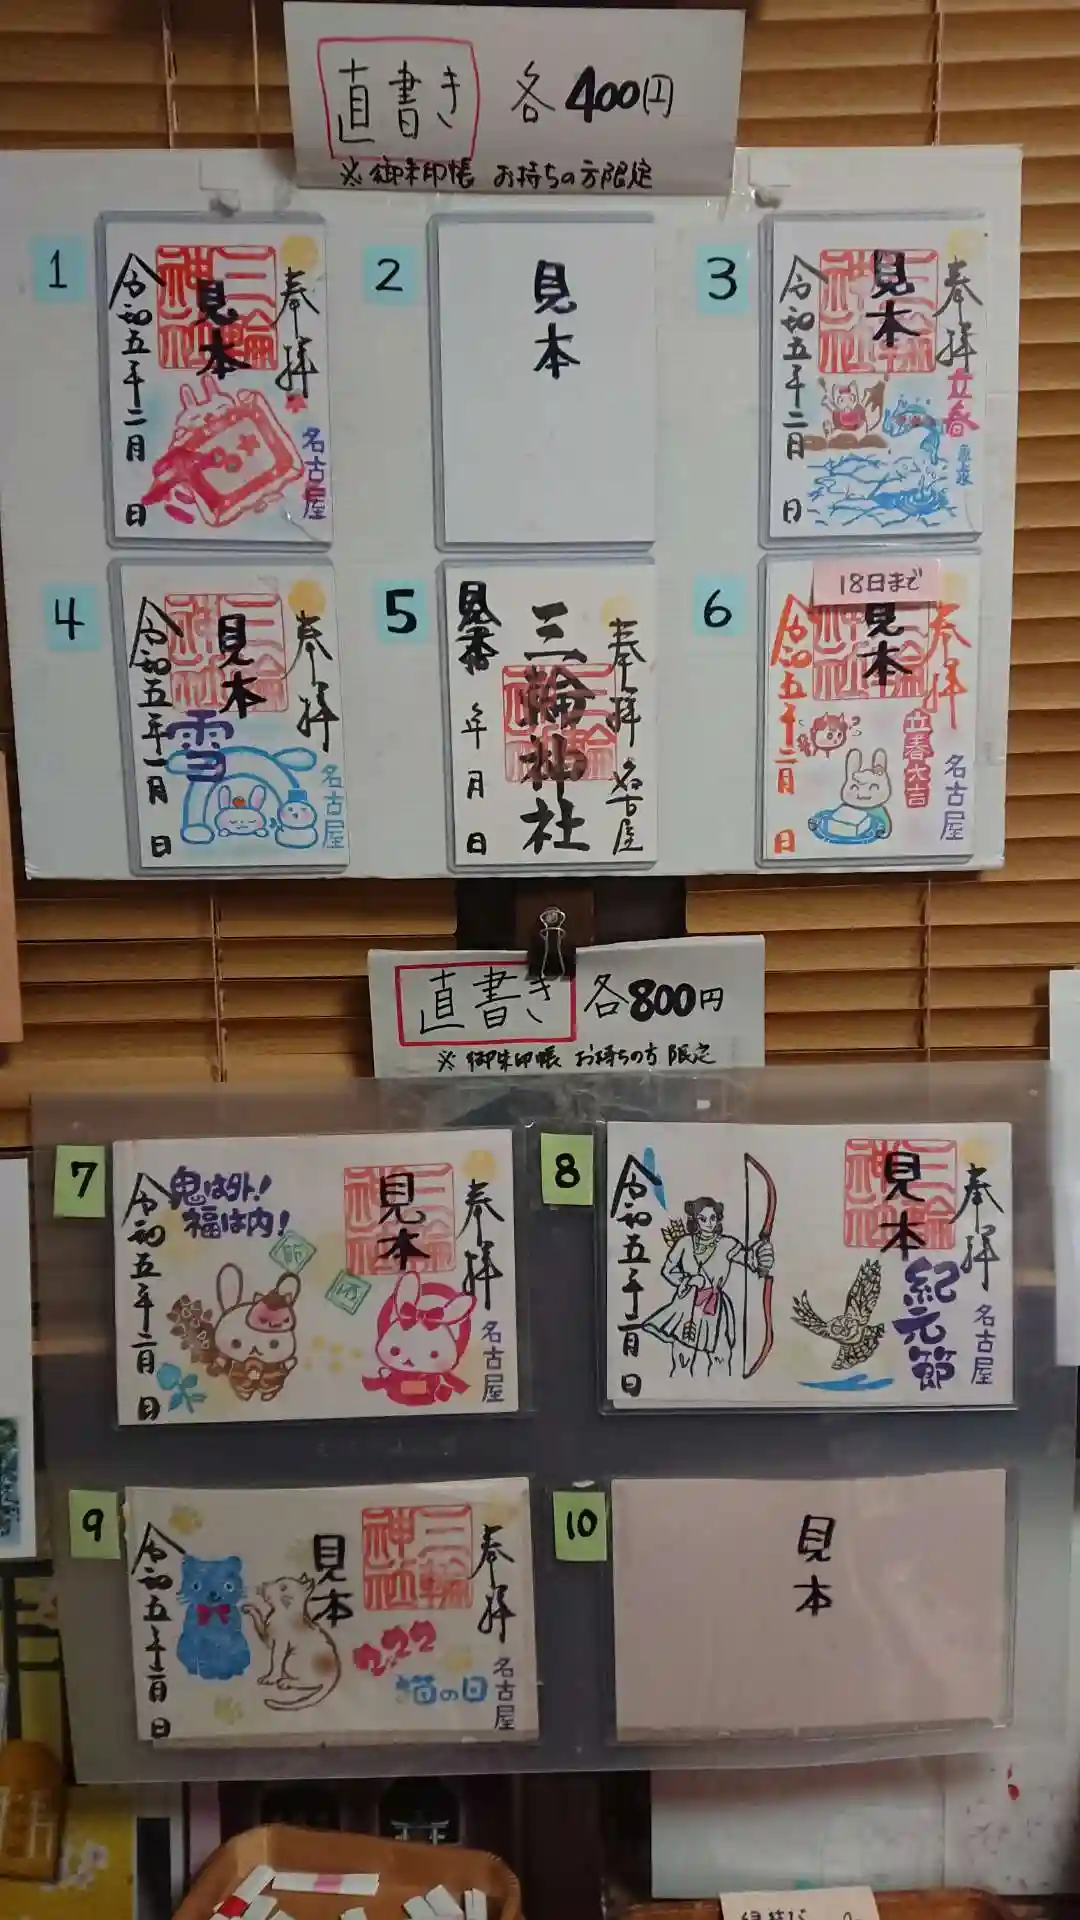 直書き 各400円
※御朱印帳 お持ちの方限定
1
奉拝
三輪神社
見本
名古屋
令和五年二月 日
2
見本
3
奉拝
三輪神社
見本
立春
令和五年二月 日
4
奉拝
三輪神社
見本
雪
名古屋
令和五年一月 日
5
奉拝
名古屋
三輪神社
見本
年 月 日
6
18日まで
奉拝
三輪神社
見本
立春大吉
名古屋
令和五年二月 日
直書き 各800円
※御朱印帳 お持ちの方限定
7
奉拝
名古屋
三輪神社
見本
鬼は外!
福は内!
令和五年二月 日
8
奉拝
名古屋
三輪神社
見本
紀元節
令和五年二月 日
9
奉拝
名古屋
三輪神社
見本
222
猫の日
令和五年二月 日
10
見本